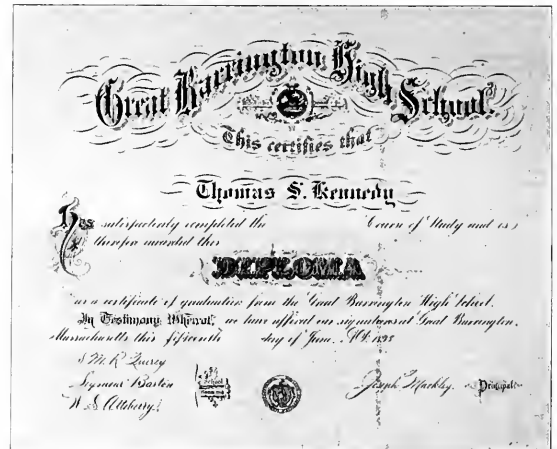 Great Barrington High School.
This certifies that
Thomas S. Kennedy
Has satisfactorily completed the Course of Study and is
therefor awarded this
DIPLOMA
as a certificate of graduation from the Great Barrington High School.
In Testimony Whereof, we have affixed our signatures at Great Barrington,
Massachusetts this fifteenth day of June, A.D.
Joseph Mackley. Principal
School